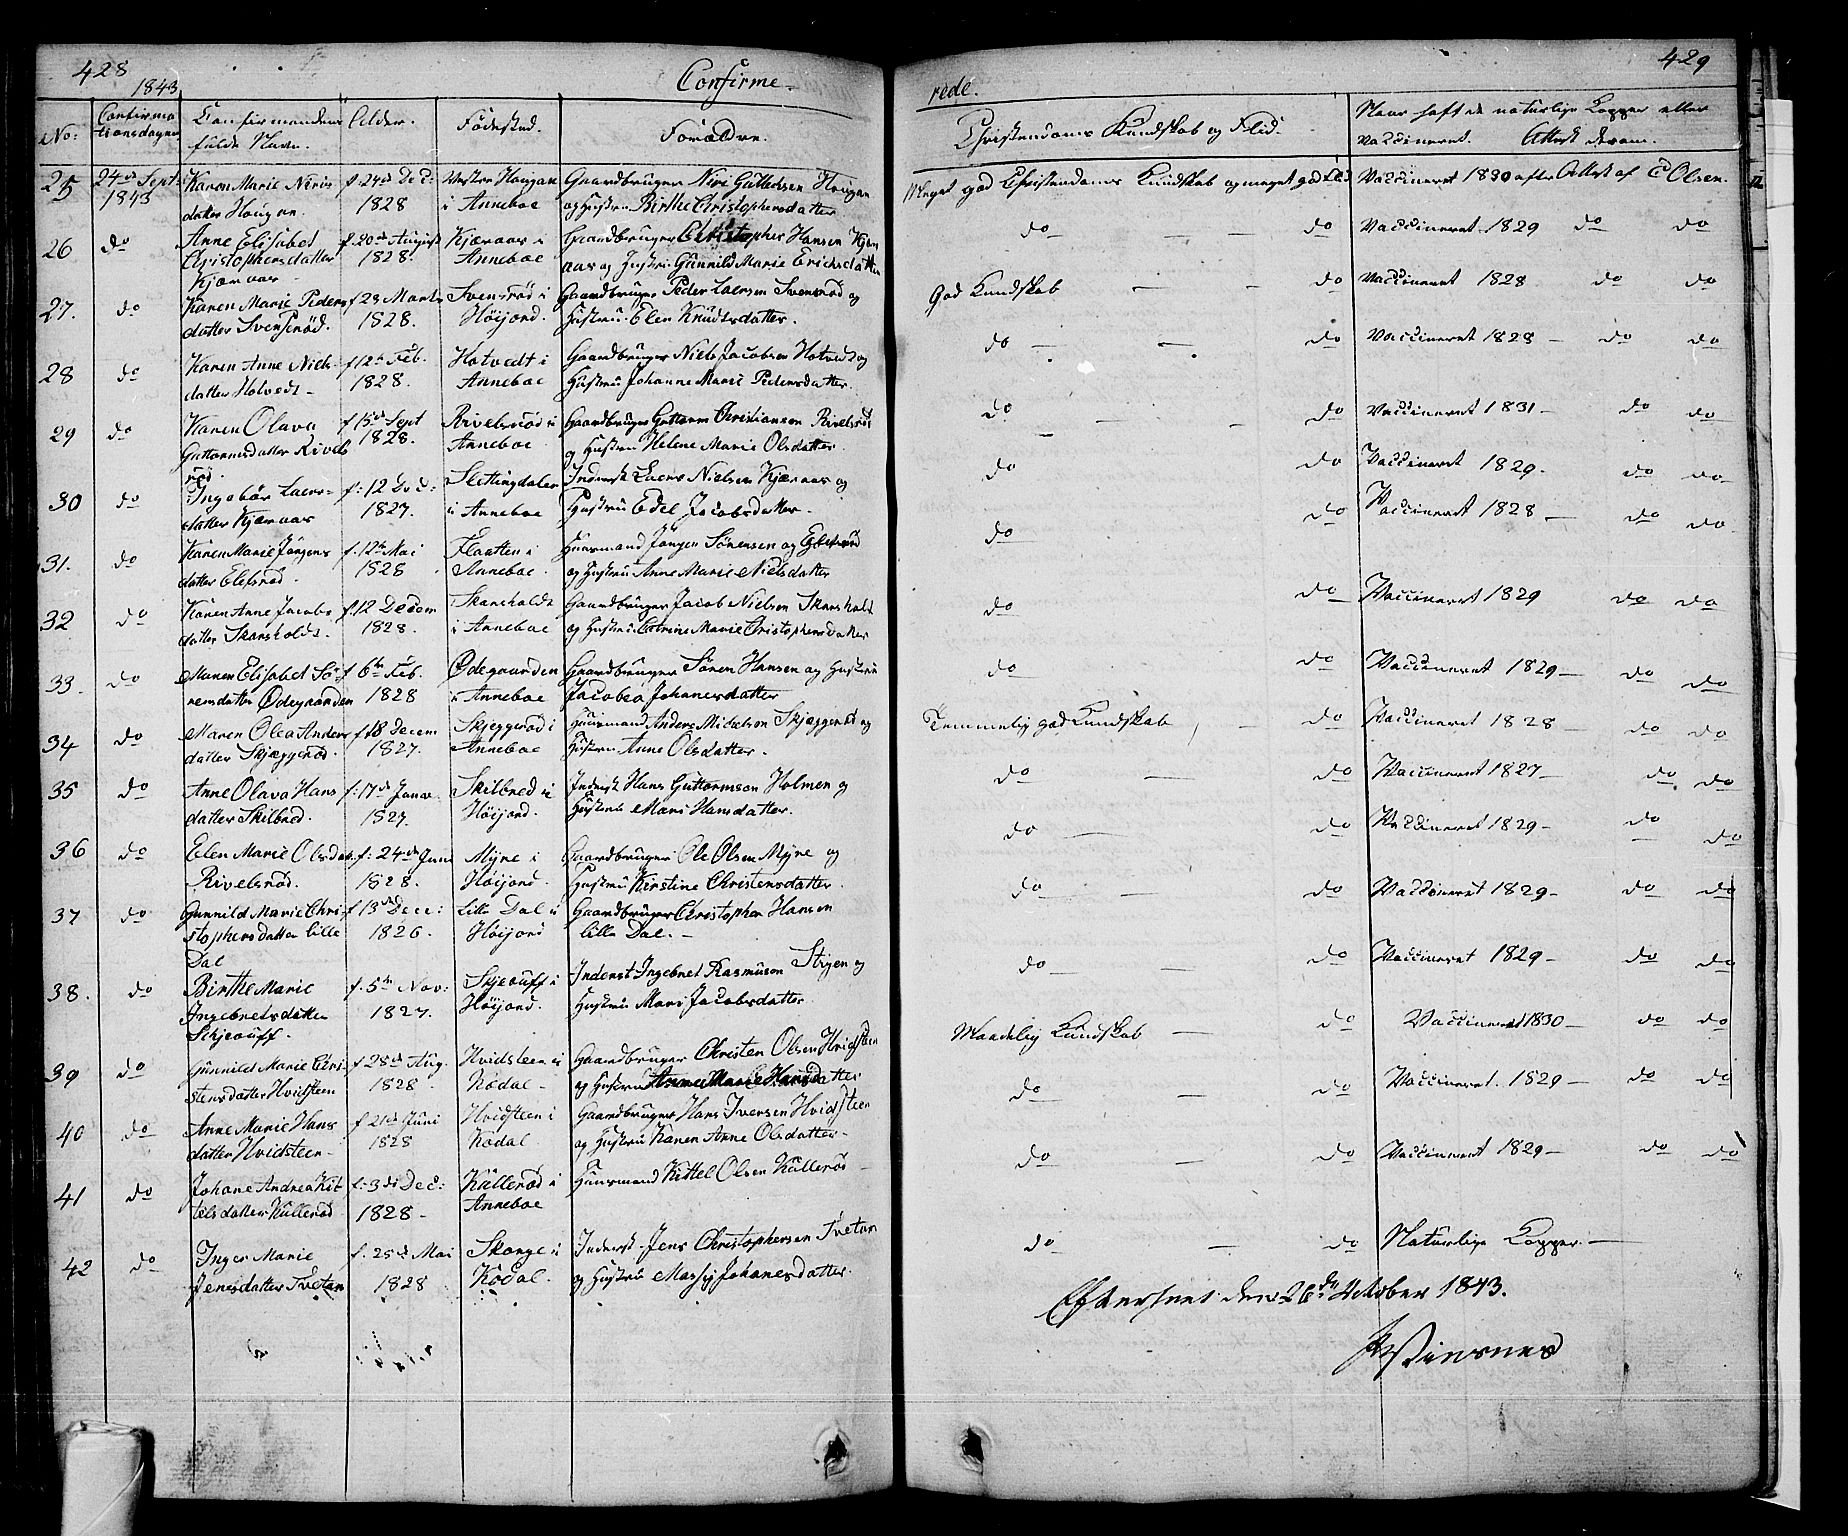 428
1843
Confirme-
No:
Confirma
tionsdagen
Confirmandens
fulde Navn.
Alder.
Fødested.
Forældre.
25
24de Sept:
1843
Karen Marie Niris
datter Hougan.
f. 24de Dec:
1828
Vester Hougan
i Anneboe
Gaardbruger Niri Guttichsen Hougan
og Hustru Birthe Christophersdatter
26
do
Anne Elisabet
Christophersdatter
Kjæraas-
f. 20de August
1828.
Kjæraas i
Anneboe
Gaardbruger Christopher Hansen Kjær
aas og Hustru Gunnild Marie Ericksdatter
27.
do
Karen Marie Peders
datter Svensrød.
f 28 Marts
1828.
Svensrød i
Høijord.
Gaardbruger Peder Laersen Svensrød og
Hustru Elen Knudtsdatter.
28
do
Karen Anne Niels
datter Hotvedt-
f 12te Feb.
1828.
Hotvedt i
Anneboe
Gaardbruger Niels Jacobsen Hotvedt og
Hustru Johanne Marie Pedersdatter.
29
do
Karen Olava
Guttormsdatter Rivels
rød
f 15de Sept
1828.
Rivelsrød i
Anneboe
Gaardbruger Guttorm Christiansen Rivelsrød
og Hustru Helene Marie Olsdatter.
30
do
Ingebør Laers-
datter Kjæraas
f: 12 Dec:
1827.
Slettingdalen
i Anneboe
Inderst Laers Nielsen Kjæraas og
Hustru Edel Jacobsdatter.
31.
do
Karen Marie Jørgens
datter Elefsrød.
f. 12te Mai
1828
Flaatten i
Anneboe.
Huusmand Jørgen Sørensen
og Hustru Anne Marie Nielsdatter
32
do
Karen Anne Jacobs
datter Skarsholdt.
f. 12 Decem
1828.
Skarsholdt
i Anneboe
Gaardbruger Jacob Nielsen Skarsholt
og Hustru Cetrine Marie Cristophersdatter
33.
do
Maren Elisabet Sø-
rensdatter Ødegaarden
f 6te Feb.
1828
Ødegaarden
i Anneboe
Gaardbruger Søren Hansen og Hustru
Jacobea Johanesdatter
34
do
Maren Olea Anders
datter Skjæggerød.
f. 18 Decem
1827.
Skjeggerød i
Anneboe
Huusmand Anders Mickelsen Skjæggerød og
Hustru Anne Olsdatter.
35
do
Anne Olava Hans
datter Skilbred.
f: 17de Janua
1827.
Skilbred i
Høijord.
Inderst Hans Guttormsen Holmen og
Hustru Mari Hansdatter.
36
do
Elen Marie Olsdat
Rivelsrød.
f: 24de Juni
1828.
Myre i
Høijord.
Gaardbruger Ole Olsen Myre og
Hustru Kirstine Christensdatter.
37
do
Gunnild Marie Chri
stophersdatter lille
Dal
f 13de Dece:
1826.
Lille Dal i
Høijord
Gaardbruger Christopher Hansen
lille Dal.-
38.
do
Birthe Marie
Ingebretsdatter
Schjeauff.
f. 5te Nov:
1827.
Skjeauff i
Høijord.
Inderst Ingebret Rasmusen Stryen og
Hustru Mari Jacobsdatter.
39
do
Gunnild Marie Chri
stensdatter Hvidsteen
f. 28de Aug.
1828
Hvidsteen i
Kodal-
Gaardbruger Christen Olsen Hvidsteen
og Hustru Anne Marie Hansdatter
40
do
Anne Marie Hans
datter Hvidsteen-
f 21de Juni
1828
Hvidsteen i
Kodal
Gaardbruger Hans Iversen Hvidsteen
og Hustru Karen Anne Olsdatter-
41
do
Johane Andrea Kit
telsdatter Kullerød
f. 3de Dec:
1828-
Kullerød i
Anneboe
Huusmand Kittel Olsen Kullerød-
42
do
Inger Marie
Jensdatter Tvetan
f. 25de Mai
1828
Skorge i
Kodal.
Inderst Jens Christophersen Tvetan
og Hustru Massy Johanesdatter.
429
rede.
Christendoms Kundskab og Flid.
Naar haft de naturlige Kopper eller
vaccineret. Attest derom.
Meget god Christendoms Kundskab og meget god Flid Vaccineret 1830 efter Attest af C Olsen.
do — — do Vaccineret 1829 do do
God Kundskab — - do Vaccineret 1828 do do
do — — do Vaccineret 1828 - do do
do — - do Vaccineret 1831 - do do
do do Vaccineret 1829. do do
do do Vaccineret 1828 — do do
do do Vaccineret 1829 do do
do do Vaccineret 1829 — do do
Temmelig god Kundskab - do Vaccineret 1828 — do do
do — do Vaccineret 1827 - do do
do — do Vaccineret 1829 - do do
do — do Vaccineret 1829 - do do
do — do Vaccineret 1829 - do do
Maadelig Kundskab — do Vaccineret 1830 - do do
do — do Vaccineret. 1829 — do do
do — do Vaccineret 1829 - do do
do — do Naturlige Kopper —
Efterseet den 26de October 1843.